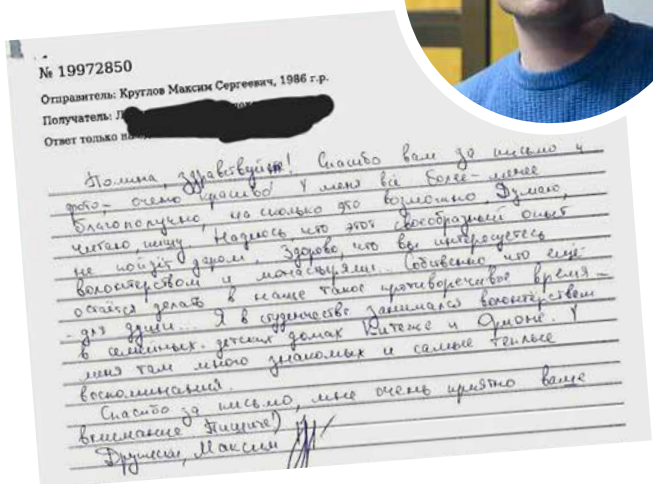 № 19972850
Отправитель: Круглов Максим Сергеевич, 1986 г.р.
Получатель: Л
Ответ только на
Полина, здравствуйте! Спасибо вам за письмо и
фото – очень красиво! У меня всё более-менее
благополучно, на сколько это возможно. Думаю,
читаю, пишу. Надеюсь что этот своеобразный опыт
не пойдёт даром. Здорово, что вы интересуетесь
волонтерством и монастырями. Собственно что ещё
остаётся делать в наше такое противоречивое время –
– для души... Я в студенчестве занимался волонтёрством
в семейных детских домах Китеже и Орионе. У
меня там много знакомых и самые теплые
воспоминания.
Спасибо за письмо, мне очень приятно ваше
внимание Пишите!)
Дружески, Максим